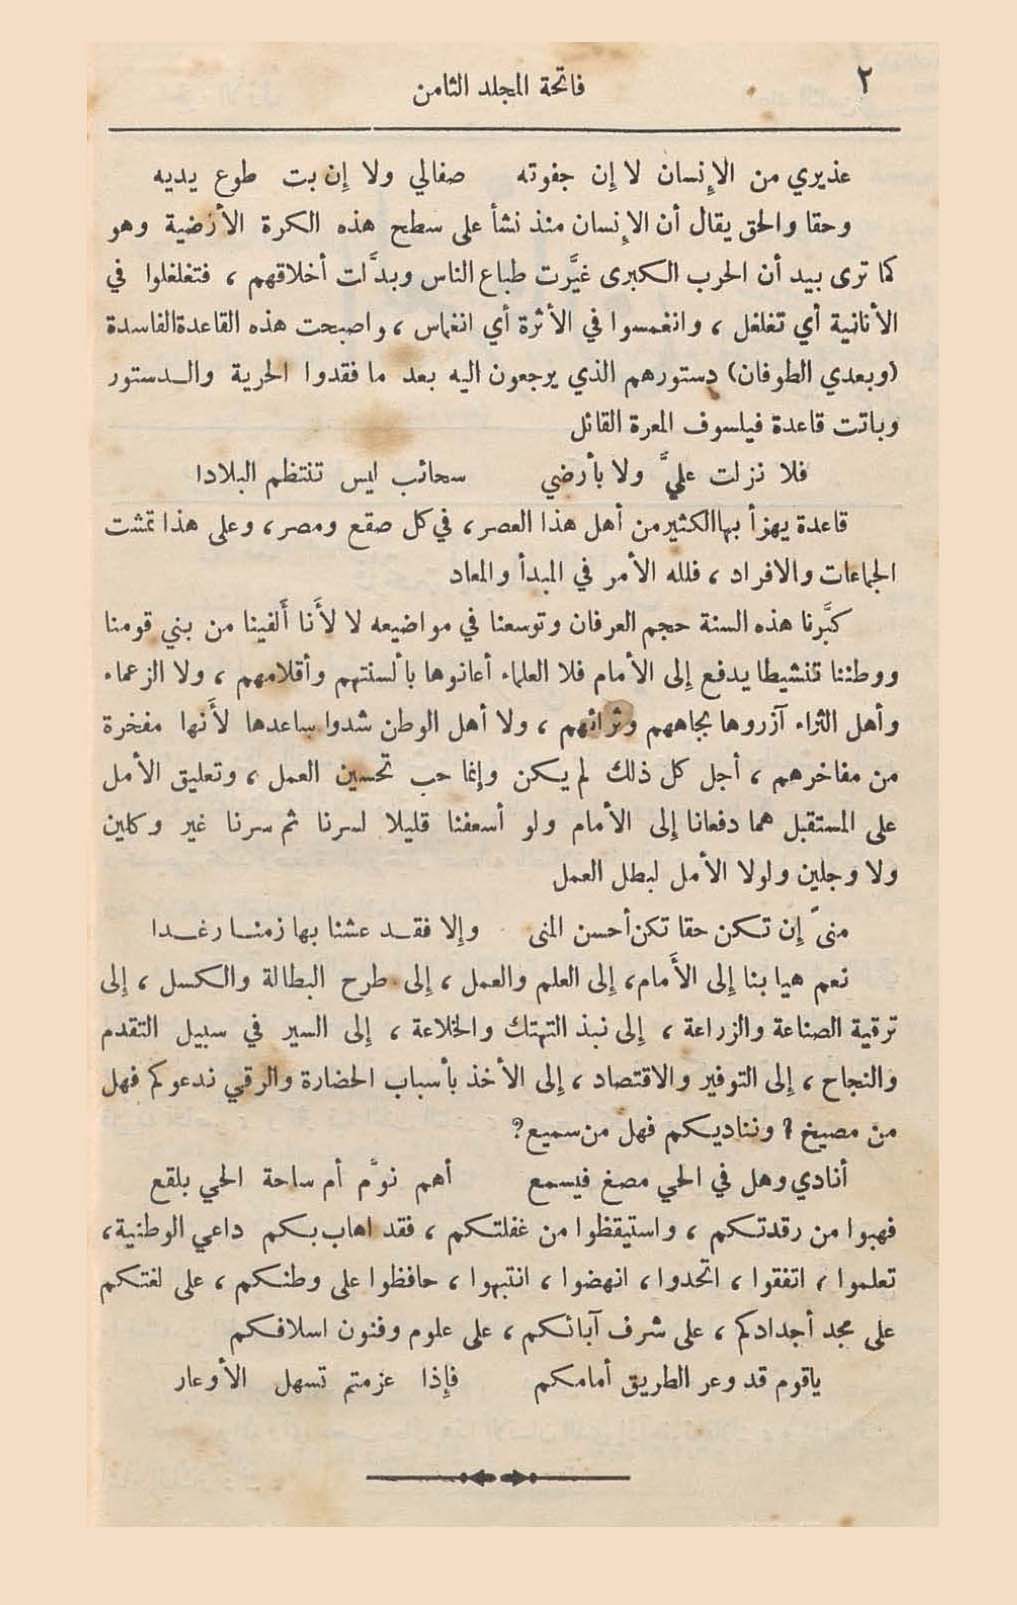 ٢
فاتحة المجلد الثامن
عذيري من الإنسان لا إن جفوته صفالي ولا إن بت طوع يديه
وحقا والحق يقال أن الإنسان منذ نشأ على سطح هذه الكرة الأرضية وهو
كما ترى بيد أن الحرب الكبرى غيَّرت طباع الناس وبدَّلت أخلاقهم ، فتغلغلوا في
الأنانية أي تغلغل ، وانغمسوا في الأثرة أي انغماس ، واصبحت هذه القاعدة الفاسدة
(وبعدي الطوفان) دستورهم الذي يرجعون اليه بعد ما فقدوا الحرية والـدستور
وباتت قاعدة فيلسوف المعرة القائل
فلا نزلت عليَّ ولا بأرضي سحائب ليس تنتظم البلادا
قاعدة يهزأ بها الكثير من أهل هذا العصر ، في كل صقع ومصر ، وعلى هذا تمشت
الجماعات والافراد ، فلله الأمر في المبدأ والمعاد
كبَّرنا هذه السنة حجم العرفان وتوسعنا في مواضيعه لا لأَنا أَلفينا من بني قومنا
ووطننا تنشيطا يدفع إلى الأمام فلا العلماء أعانوها بألسنتهم وأقلامهم ، ولا الزعماء
وأهل الثراء آزروها بجاههم وثرائهم ، ولا أهل الوطن شدوا ساعدها لأَنها مفخرة
من مفاخرهم ، أجل كل ذلك لم يكن وإنما حب تحسين العمل ، وتعليق الأمل
على المستقبل هما دفعانا إلى الأمام ولو أسعفنا قليلا لسرنا ثم سرنا غير وكلين
ولا وجلين ولولا الأمل لبطل العمل
منىً إن تكن حقا تكن أحسن المنى وإلا فقـد عشنا بها زمنـا رغـدا
نعم هيا بنا إلى الأَمام، إلى العلم والعمل ، إلى طرح البطالة والكسل ، إلى
ترقية الصناعة والزراعة ، إلى نبذ التهتك والخلاعة ، إلى السير في سبيل التقدم
والنجاح ، إلى التوفير والاقتصاد ، إلى الأخذ بأسباب الحضارة والرقي ندعوكم فهل
من مصيخ ؟ ونناديكم فهل من سميع؟
أنادي وهل في الحي مصغ فيسمع أهم نوَّم أم ساحة الحي بلقع
فهبوا من رقدتكم ، واستيقظوا من غفلتكم ، فقد اهاب بكم داعي الوطنية،
تعلموا ، اتفقوا ، اتحدوا ، انهضوا ، انتبهوا ، حافظوا على وطنكم ، على لغتكم
على مجد أجدادكم ، على شرف آبائكم ، على علوم وفنون اسلافكم
ياقوم قد وعر الطريق أمامكم فإذا عزمتم تسهل الأوعار